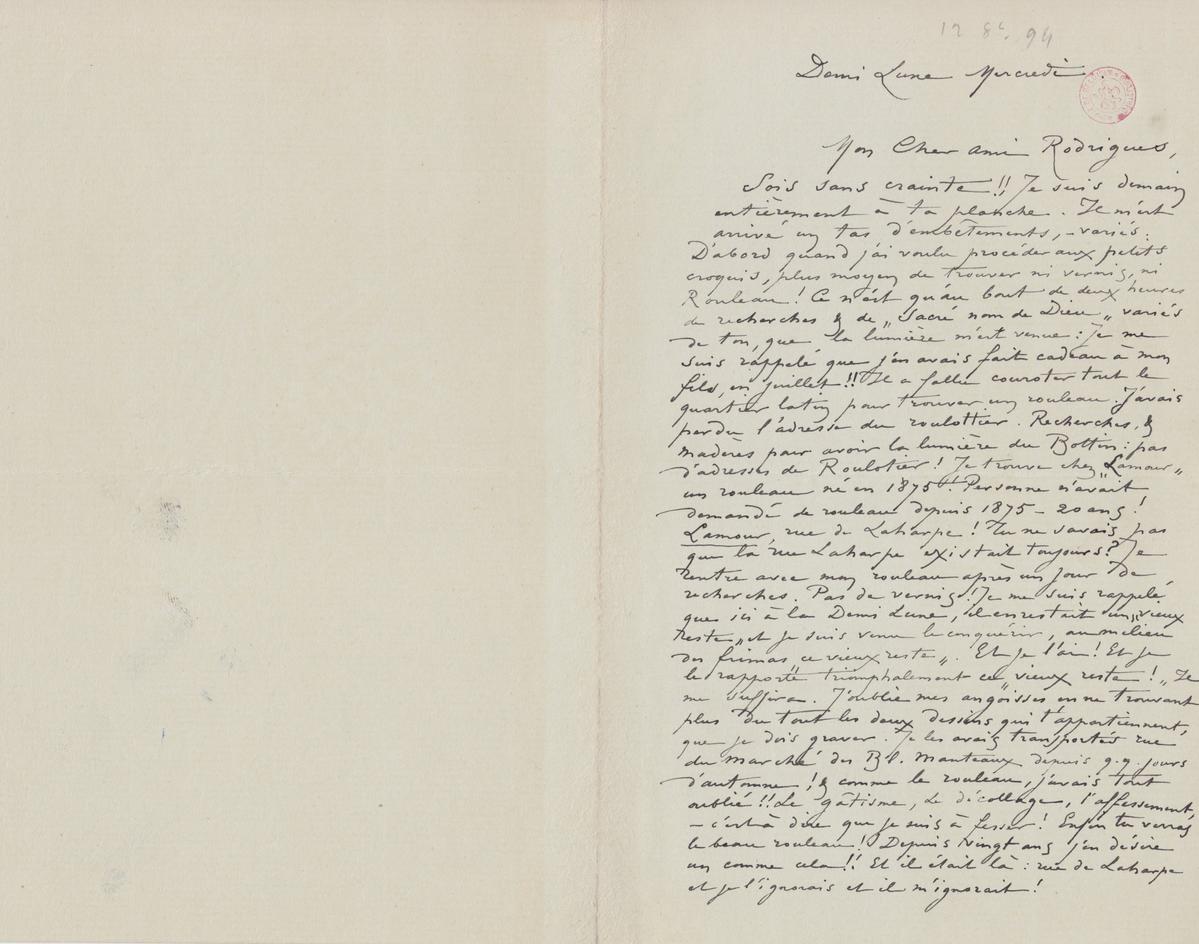 12 8c. 94
Demi Lune Mercredi
Mon Cher ami Rodrigues,
Sois sans crainte !! Je suis demain
entièrement à ta planche. Il m'est
arrivé un tas d'embêtements, – variés :
D'abord quand j'ai voulu procéder aux petits
croquis, plus moyen de trouver ni vernis, ni
Rouleau ! Ce n'est qu'au bout de deux heures
de recherches & de „ Sacré nom de Dieu „ variés
de ton, que la lumière m'est venue : Je me
suis rappelé que j'en avais fait cadeau à mon
fils, en juillet !! Il a fallu couroter tout le
quartier latin pour trouver un rouleau. J'avais
perdu l'adresse du roulottier. Recherches, &
madères pour avoir la lumière du Bottin : pas
d'adresses de Roulotier ! Je trouve chez „Lamour„
un rouleau né en 1875 ! Personne n'avait
demandé de rouleau depuis 1875 – 20 ans !
Lamour, rue de Laharpe ! Tu ne savais pas
que la rue Laharpe existait toujours ? Je
rentre avec mon rouleau après un jour de
recherches. Pas de vernis ! Je me suis rappelé
que ici à la Demi Lune, il en restait un „vieux
reste„ et je suis venu le conquérir, au milieu
des frimas, ce vieux reste „. Et je l'ai ! Et je
le rapporte triomphalement ce „vieux reste ! „ Il
me suffira. J'oublie mes angoisses en ne trouvant
plus du tout les deux dessins qui t'appartiennent,
que je dois graver. Je les avais transportés rue
du Marché des Bl. Manteaux depuis q.q. jours
d'automne ! & comme le rouleau, j'avais tout
oublié !! Le gâtisme, Le décollage, l'affessement,
– c'est à dire que je suis à fesser ! Enfin tu verras
le beau rouleau ! Depuis vingt ans j'en désire
un comme cela !! Et il était là : rue de Laharpe
et je l'ignorais et il m'ignorait !